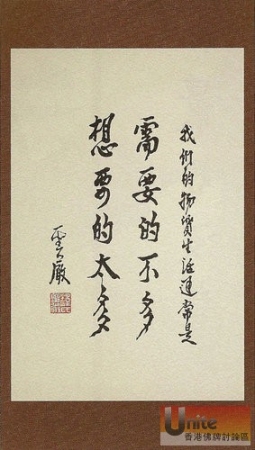 我们的物質生活通常是
需要的不多
想要的太多
聖嚴
Unite
香港佛牌討論區